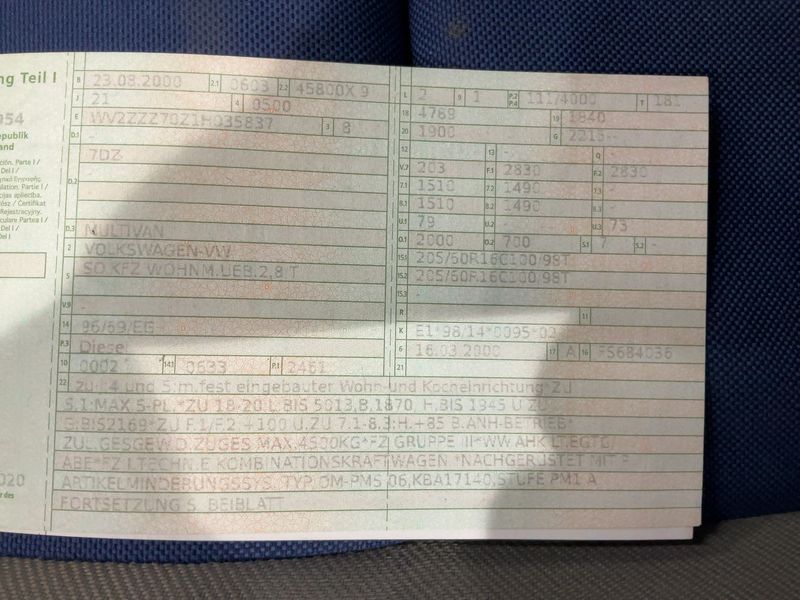 ng Teil I
954
epublik
and
ación. Parte I /
Del I /
ulation. Partie I /
Rejestracyjny.
culare Partea I /
Del I /
Del I
020
r des
B 23.08.2000 2.1 0603 2.2 45800X 9
J 21 4 0500
E WV2ZZZ70Z1H035837 3 8
D.1 -
D.2 7DZ
-
D.3 MULTIVAN
2 VOLKSWAGEN-VW
5 SO.KFZ WOHNM.UEB.2,8 T
V.9 -
14 96/69/EG
P.3 Diesel
10 0002 14.1 0633 P.1 2461
L 2 9 1 P.2 P.4 111/4000 T 181
18 4789 19 1840
20 1900 G 2215-
12 - 13 - Q -
V.7 203 F.1 2830 F.2 2830
7.1 1510 7.2 1490 7.3 -
8.1 1510 8.2 1490 8.3 -
U.1 79 U.2 - U.3 73
O.1 2000 O.2 700 S.1 7 S.2 -
15.1 205/60R16C100/98T
15.2 205/60R16C100/98T
15.3 -
R 11
K E1*98/14*0095*02
6 16.03.2000 17 A 16 FS684036
21
22 zu :4 und 5: m.fest eingebauter Wohn-und Kocheinrichtung*ZU
S.1:MAX.5-PL.*ZU 18-20:L.BIS 5013,B.1870, H.BIS 1945 U.ZU
G:BIS2169*ZU F.1/F.2 +100 U.ZU 7.1-8.3:H.+85 B.ANH-BETRIEB*
ZUL.GESGEW.D.ZUGES MAX.4500KG*FZ GRUPPE III*WW.AHK LT.EGTG/
ABE*FZ I.TECHN.E KOMBINATIONSKRAFTWAGEN *NACHGERÜSTET MIT P
ARTIKELMINDERUNGSSYS. TYP:OM-PMS 06,KBA17140,STUFE PM1 A
FORTSETZUNG S. BEIBLATT